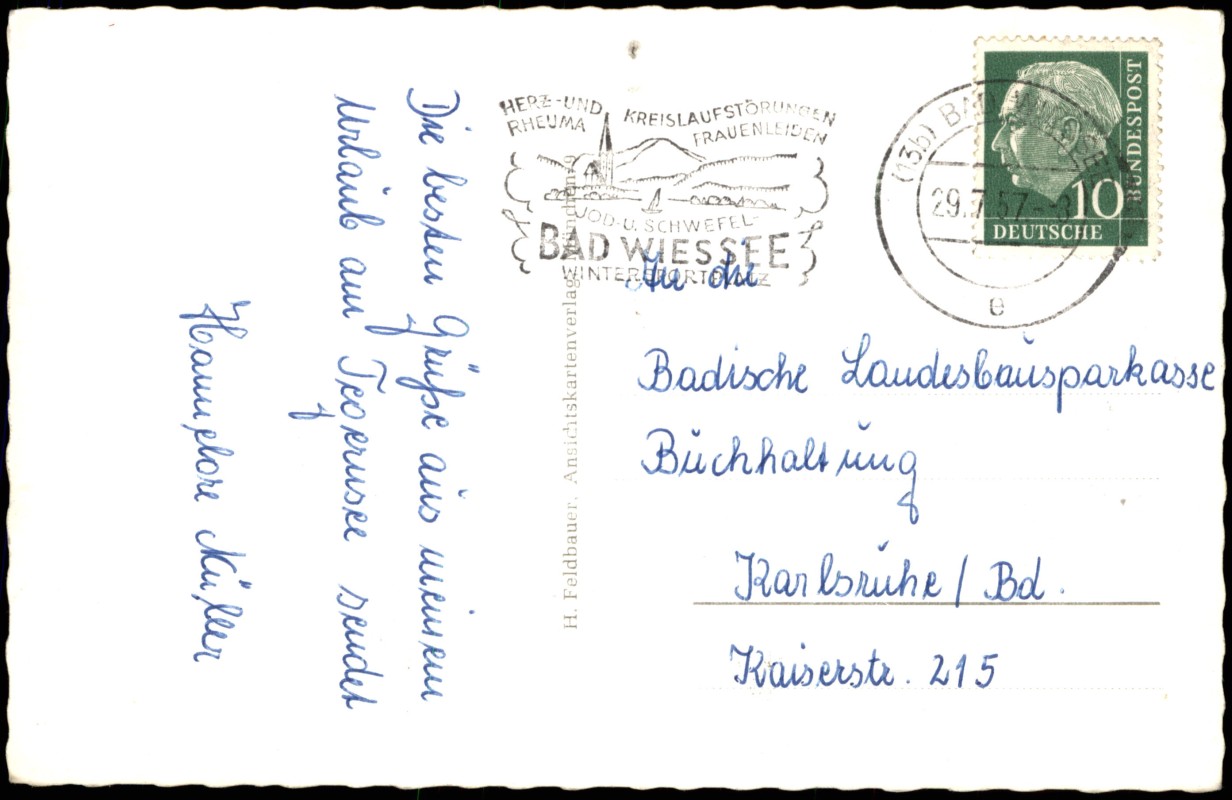 Die besten Grüße aus meinem
Urlaub am Tegernsee sendet
Hannelore Müller
H. Feldbauer, Ansichtskartenverlag, München
HERZ-UND KREISLAUFSTÖRUNGEN
RHEUMA FRAUENLEIDEN
JOD-U. SCHWEFEL-
BAD WIESSEE
WINTERSPORTPLATZ
(13b) BAD WIESSEE
29.7.57.-8
e
10
DEUTSCHE
BUNDESPOST
An die
Badische Landesbausparkasse
Buchhaltung
Karlsruhe / Bd.
Kaiserstr. 215